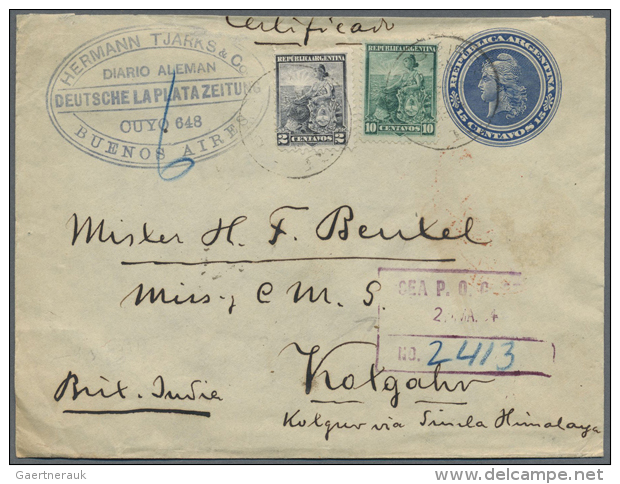 Certificado
HERMANN TJARKS & Co
DIARIO ALEMAN
DEUTSCHE LA PLATA ZEITUNG
CUYO 648
BUENOS AIRES
6
REPUBLICA ARGENTINA
2 CENTAVOS 2
REPUBLICA ARGENTINA
10 CENTAVOS 10
REPUBLICA ARGENTINA
15 CENTAVOS 15
Mister H. F. Beutel
Miss. C M. S.
SEA P. O.
NO. 2413
Kotgahr
Brit. India
Kotgur via Simla Himalaya
Gaertnerauk
delcampe.net